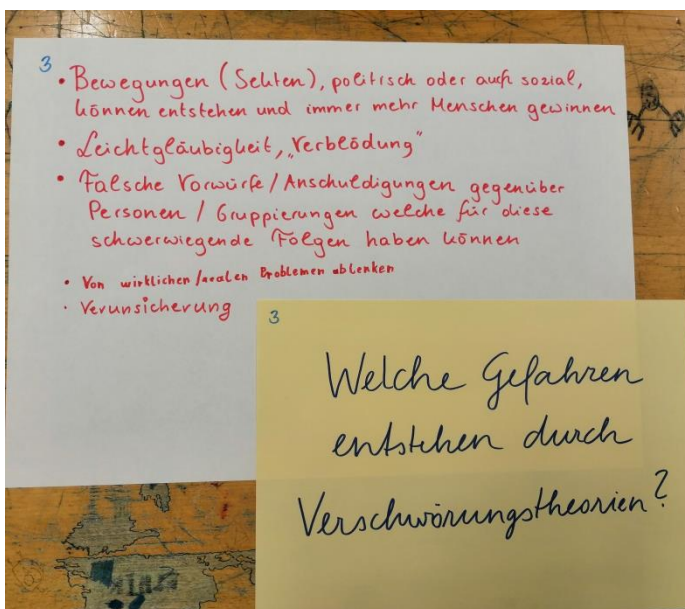 3
• Bewegungen (Sekten), politisch oder auch sozial,
können entstehen und immer mehr Menschen gewinnen
• Leichtgläubigkeit, „Verblödung"
• Falsche Vorwürfe / Anschuldigungen gegenüber
Personen / Gruppierungen welche für diese
schwerwiegende Folgen haben können
• Von wirklichen / realen Problemen ablenken
• Verunsicherung
3
Welche Gefahren
entstehen durch
Verschwörungstheorien?